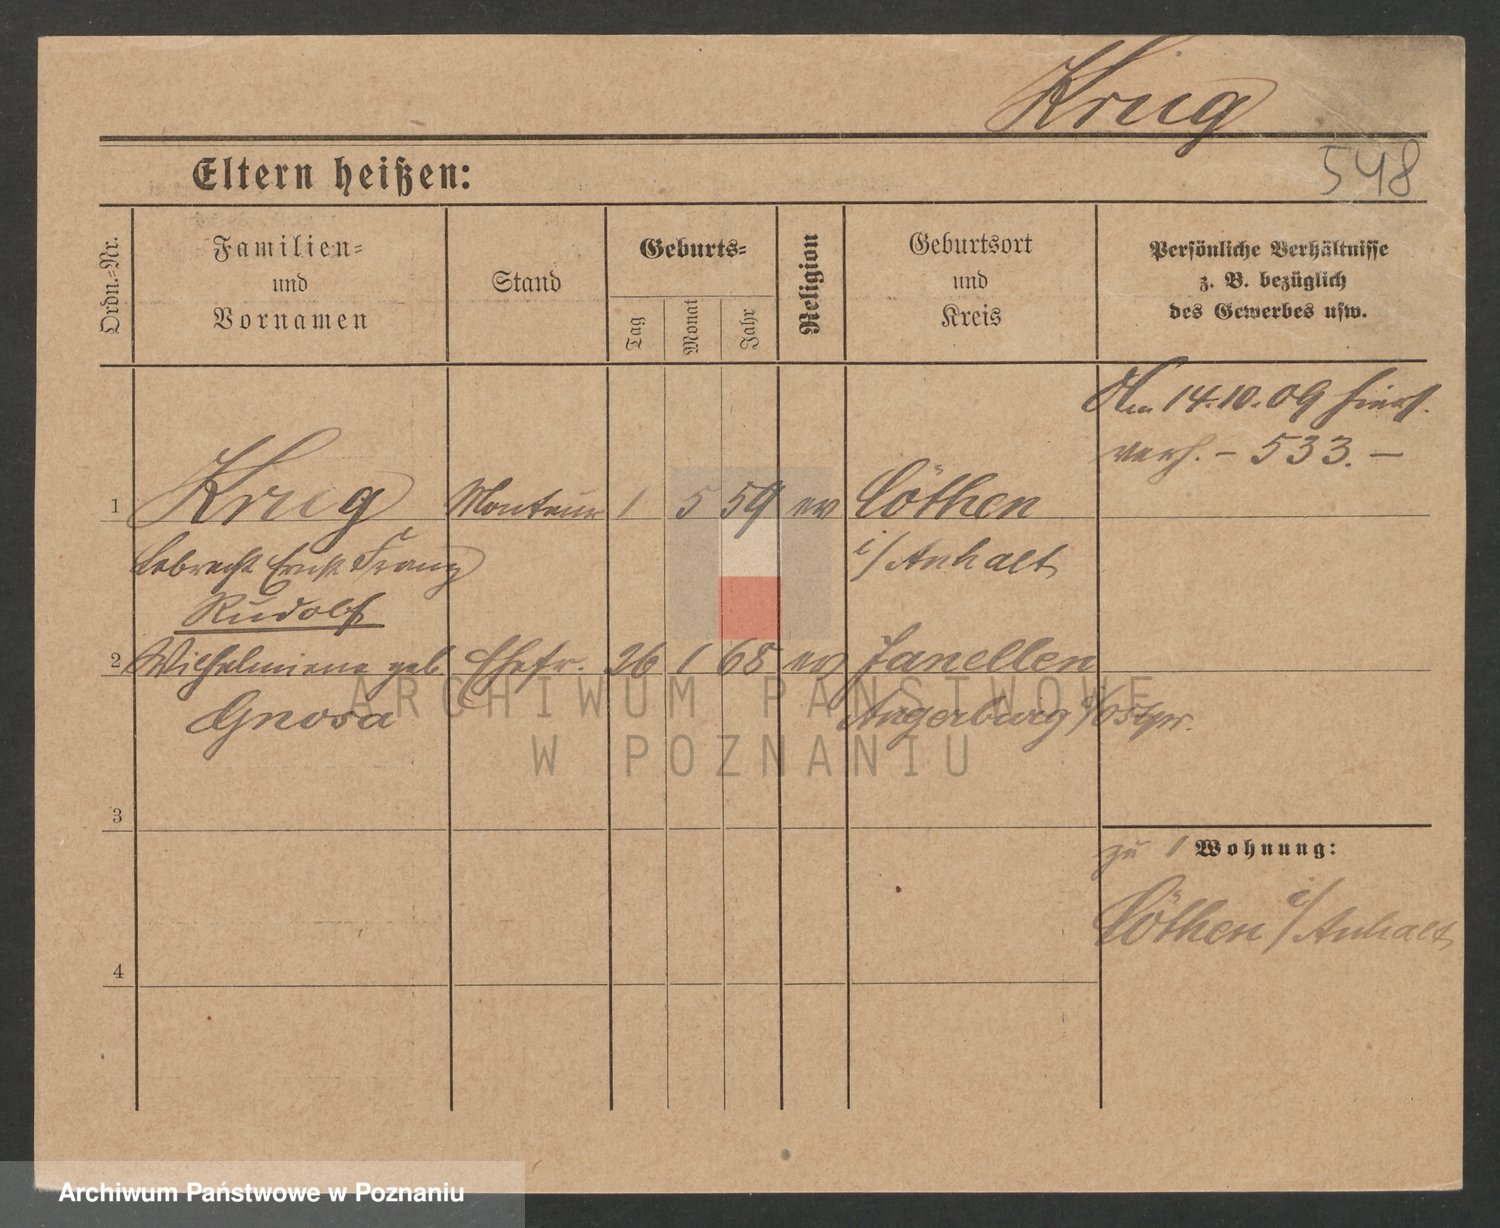 Krug
548
Eltern heißen:
Ordn.-Nr.
Familien-
und
Vornamen
Stand
Geburts-
Tag
Monat
Jahr
Religion
Geburtsort
und
Kreis
Persönliche Verhältnisse
z. B. bezüglich
des Gewerbes usw.
Am 14.10.09 hiers.
verh. – 533. –
1 Krug Monteur 1 5 59 ev Cöthen
Lebrecht Ernst Franz i/Anhalt
Rudolf
2 Wilhelmiene geb. Ehefr. 26 1 68 ev Janellen
Gnosa Angerburg i/Ostpr.
3
zu 1 Wohnung:
Cöthen i/Anhalt
4
ARCHIWUM PAŃSTWOWE
W POZNANIU
Archiwum Państwowe w Poznaniu